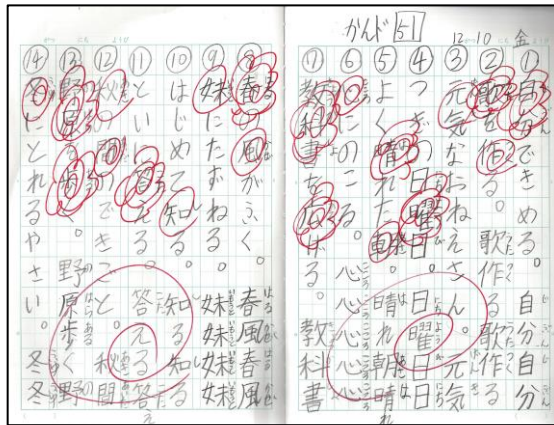 かんド 51
12 10 金
① 自分できめる。自分自分
② 歌を作る。歌作る歌作る
③ 元気なおねえさん。元気
④ つぎの日曜日。日曜日日
⑤ よく晴れた朝。晴れ朝晴れ
⑥ 心にのこる。心心心心
⑦ 教科書を広げる。教科書
⑧ 春の風がふく。春風春風
⑨ 妹にたずねる。妹妹妹妹
⑩ はじめて知る。知る知る
⑪ といに答える。答える答え
⑫ 秋の間のできごと。秋間
⑬ 野原を歩く。野原歩く野
⑭ 冬にとれるやさい。冬冬